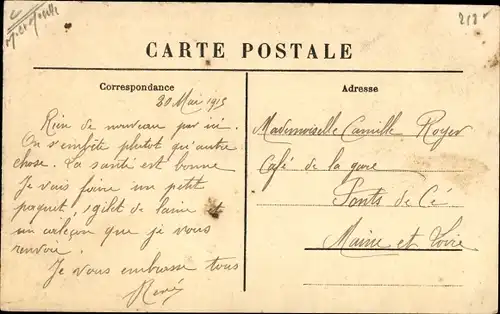 Mthe et Moselle
212
CARTE POSTALE
Correspondance
Adresse
20 Mai 1915
Rien de nouveau par ici.
On s'embête plutot qu'autre
chose. La santé est bonne
Je vais faire un petit
paquet, 1 gilet de laine et
un caleçon que je vous
renvoie.
Je vous embrasse tous
René
Mademoiselle Camille Royer
Café de la gare
Ponts de Cé
Maine et Loire